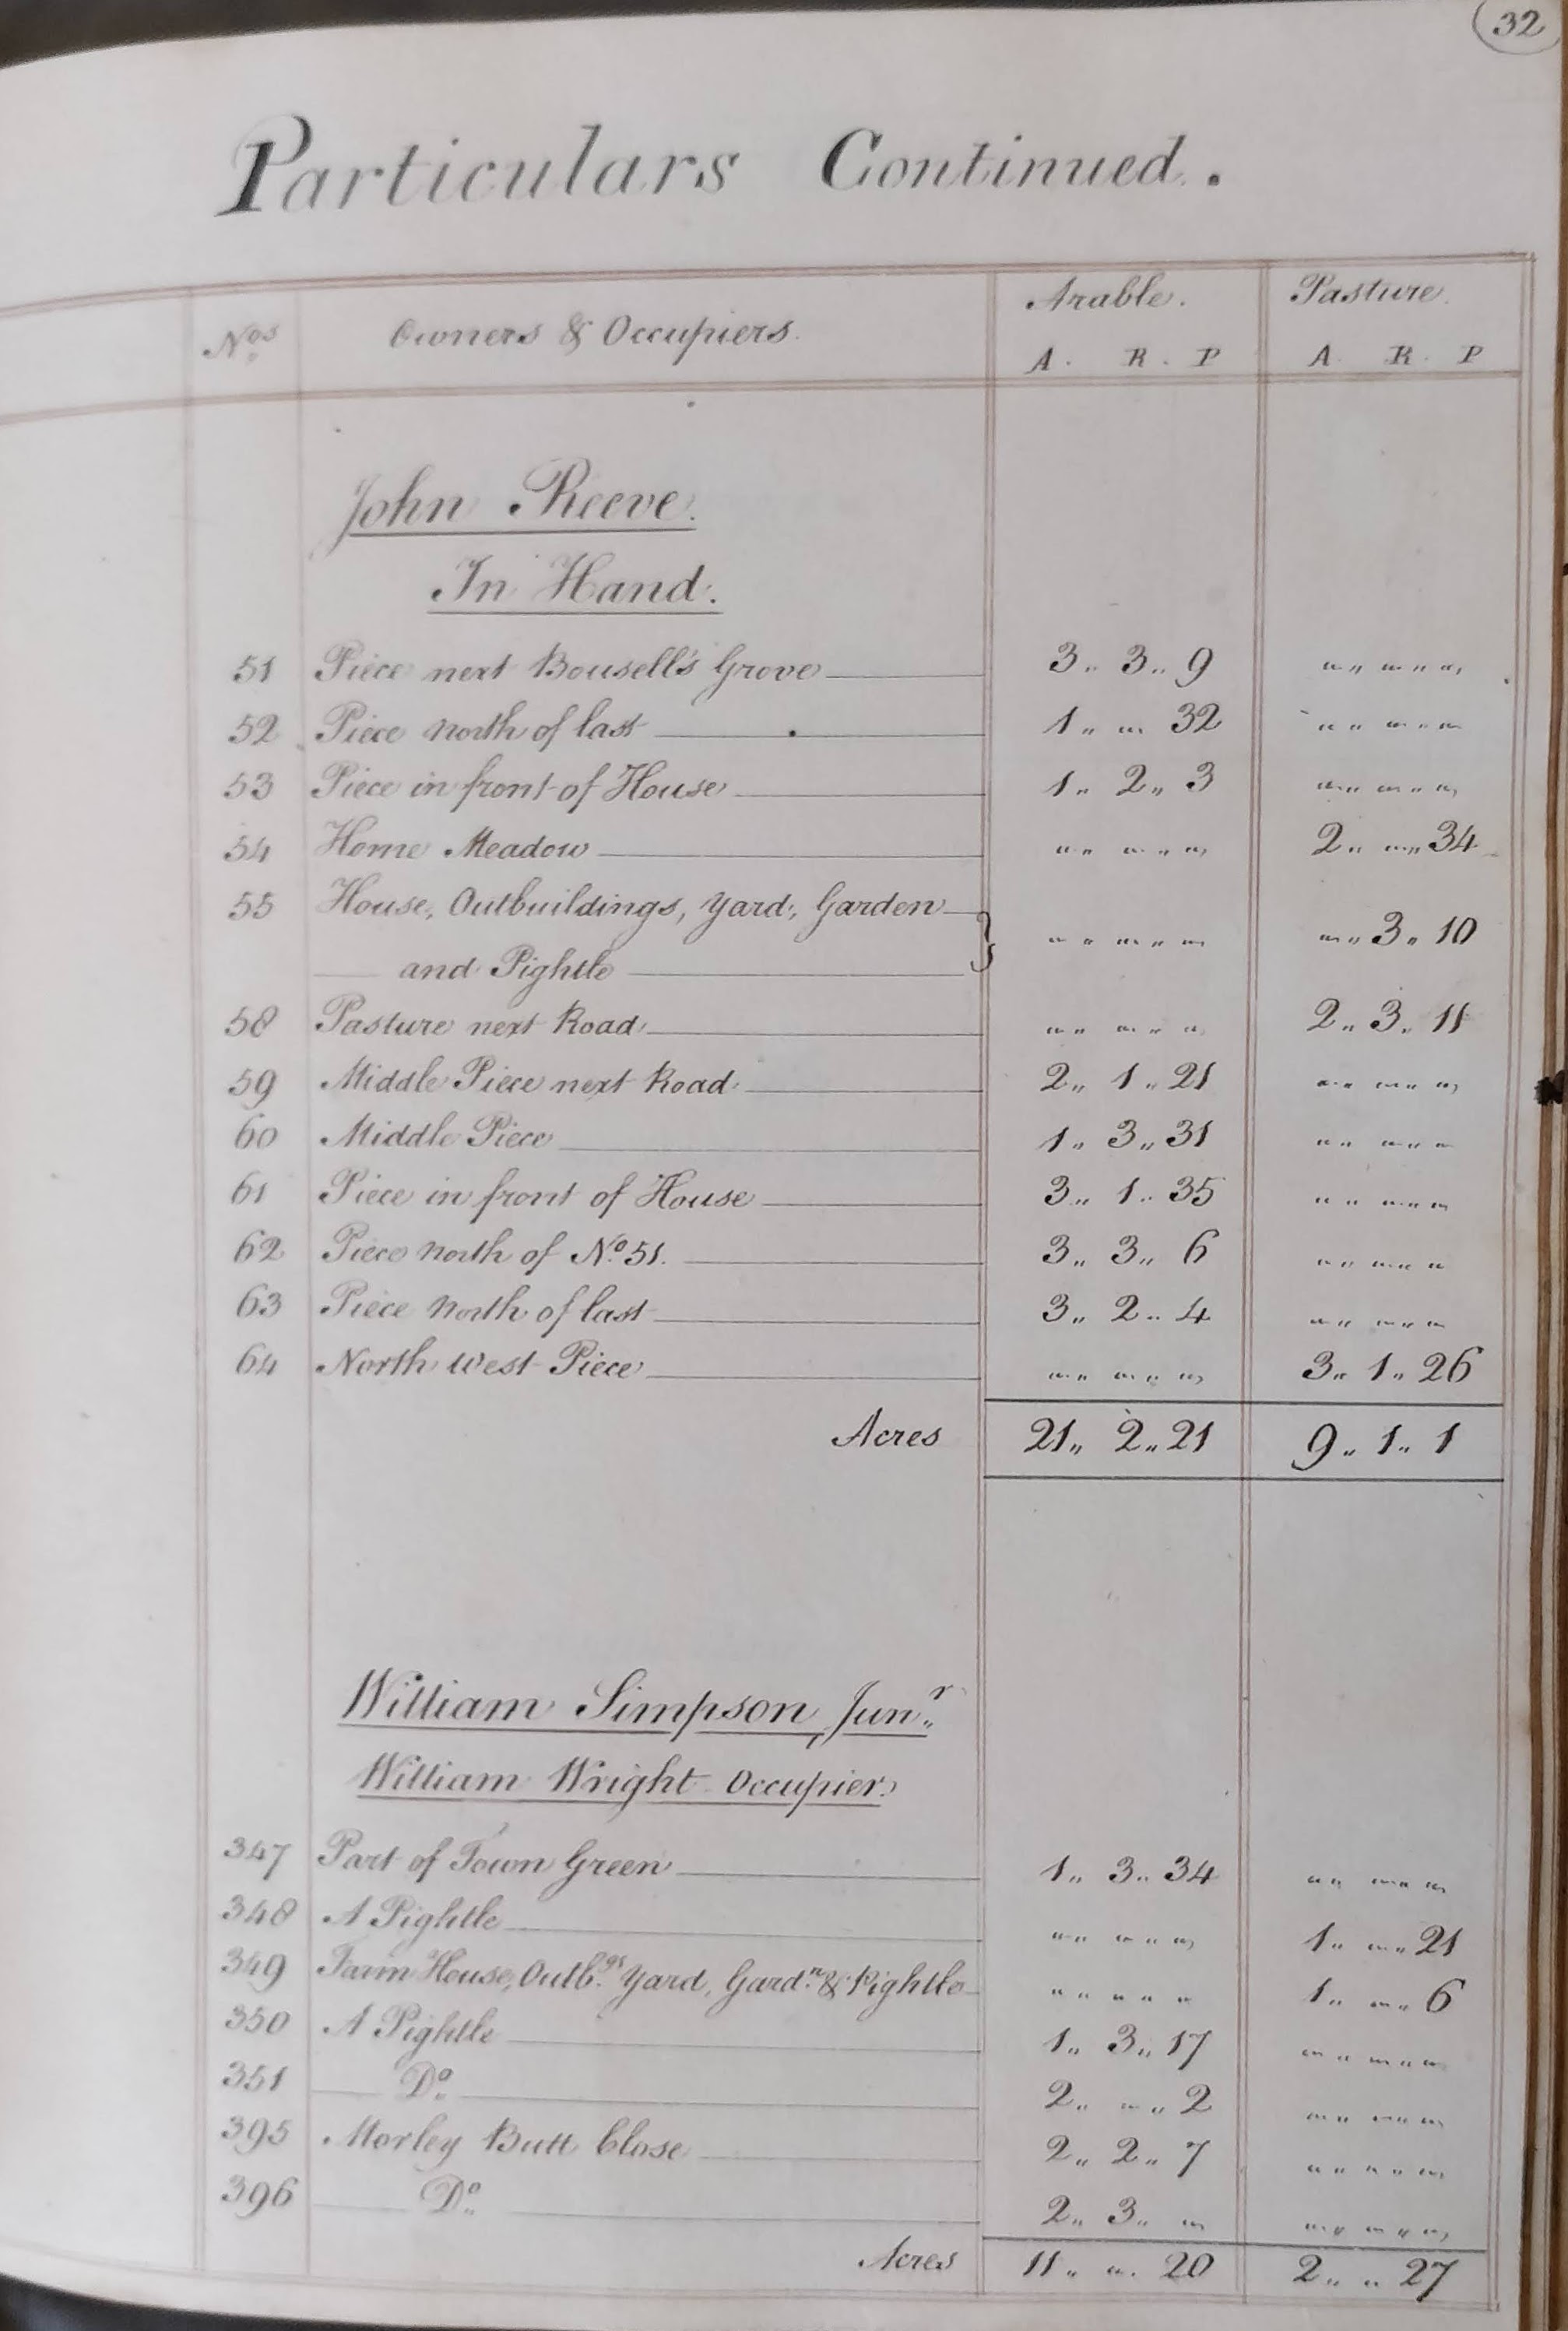 32
Particulars Continued.
Nos. Owners & Occupiers. Arable. Pasture.
A. R. P A. R. P
John Reeve.
In Hand.
51 Piece next Bousell's Grove 3 ,, 3 ,, 9 ,, ,, ,, ,, ,,
52 Piece north of last 1 ,, ,, 32 ,, ,, ,, ,, ,,
53 Piece in front of House 1 ,, 2 ,, 3 ,, ,, ,, ,, ,,
54 Home Meadow ,, ,, ,, ,, ,, 2 ,, ,, ,, 34
55 House, Outbuildings, Yard, Garden
and Pightle ,, ,, ,, ,, ,, ,, ,, 3 ,, 10
58 Pasture next Road ,, ,, ,, ,, ,, 2 ,, 3 ,, 11
59 Middle Piece next Road 2 ,, 1 ,, 21 ,, ,, ,, ,, ,,
60 Middle Piece 1 ,, 3 ,, 31 ,, ,, ,, ,, ,,
61 Piece in front of House 3 ,, 1 ,, 35 ,, ,, ,, ,, ,,
62 Piece north of No. 51. 3 ,, 3 ,, 6 ,, ,, ,, ,, ,,
63 Piece north of last 3 ,, 2 ,, 4 ,, ,, ,, ,, ,,
64 North West Piece ,, ,, ,, ,, ,, 3 ,, 1 ,, 26
Acres 21 ,, 2 ,, 21 9 ,, 1 ,, 1
William Simpson, Junr.
William Wright Occupier.
347 Part of Town Green 1 ,, 3 ,, 34 ,, ,, ,, ,, ,,
348 A Pightle ,, ,, ,, ,, ,, 1 ,, ,, ,, 21
349 Farm House, Outbgs. Yard, Gardn. & Pightle ,, ,, ,, ,, ,, 1 ,, ,, ,, 6
350 A Pightle 1 ,, 3 ,, 17 ,, ,, ,, ,, ,,
351 Do. 2 ,, ,, ,, 2 ,, ,, ,, ,, ,,
395 Morley Butt Close 2 ,, 2 ,, 7 ,, ,, ,, ,, ,,
396 Do. 2 ,, 3 ,, ,, ,, ,, ,, ,, ,,
Acres 11 ,, ,, 20 2 ,, ,, 27